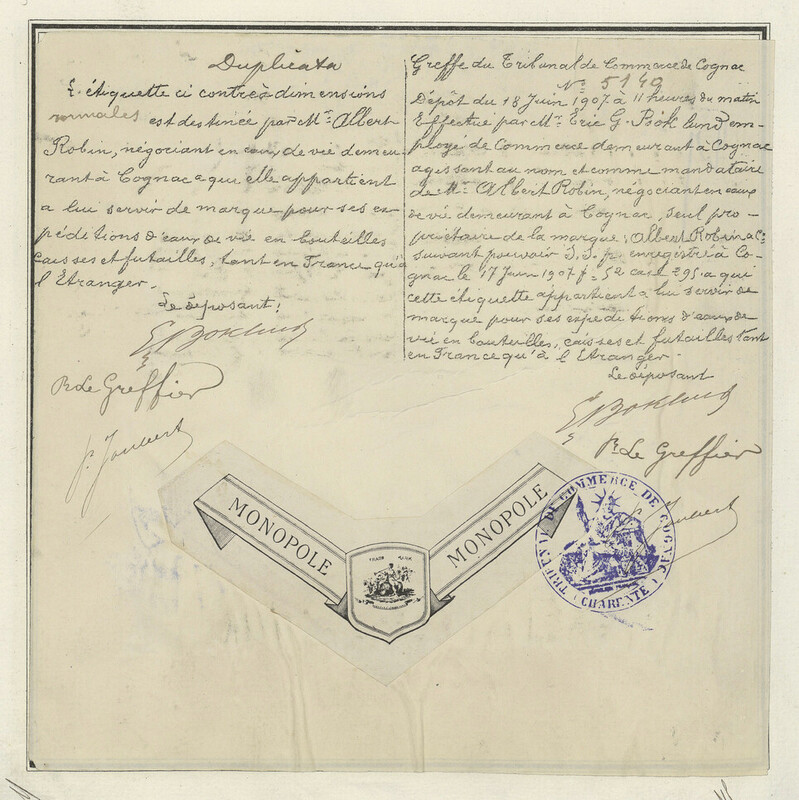 Duplicata
L'étiquette ci contre à dimensions
normales est destinée par Mr. Albert
Robin, négociant en eaux de vie demeu
rant à Cognac a qui elle appartient
a lui servir de marque pour ses ex-
péditions d'eaux de vie en bouteilles
caisses et futailles, tant en France qu'à
l'Etranger.
Le déposant:
E G Böklund
Pr. Le Greffier
p. Joubert
Greffe du Tribunal de Commerce de Cognac
No 5149
Dépôt du 18 Juin 1907 à 11 heures du matin
Effectué par Mr. Eric G. Böklund em-
ployé de Commerce demeurant à Cognac
agissant au nom et comme mandataire
de Mr. Albert Robin, négociant en eaux
de vie demeurant à Cognac, seul pro-
priétaire de la marque: Albert Robin & Co
suivant pouvoir S. S. p. enregistré à Co-
gnac le 17 Juin 1907 f = 52 case 295. a qui
cette étiquette appartient à lui servir de
marque pour ses expéditions d'eaux de
vie en bouteilles, caisses et futailles tant
en France qu'à l'Etranger.
Le déposant
E G Böklund
Pr. Le Greffier
p. Joubert
MONOPOLE
TRADE MARK
MONOPOLE
TRIBUNAL DE COMMERCE DE COGNAC
(CHARENTE)